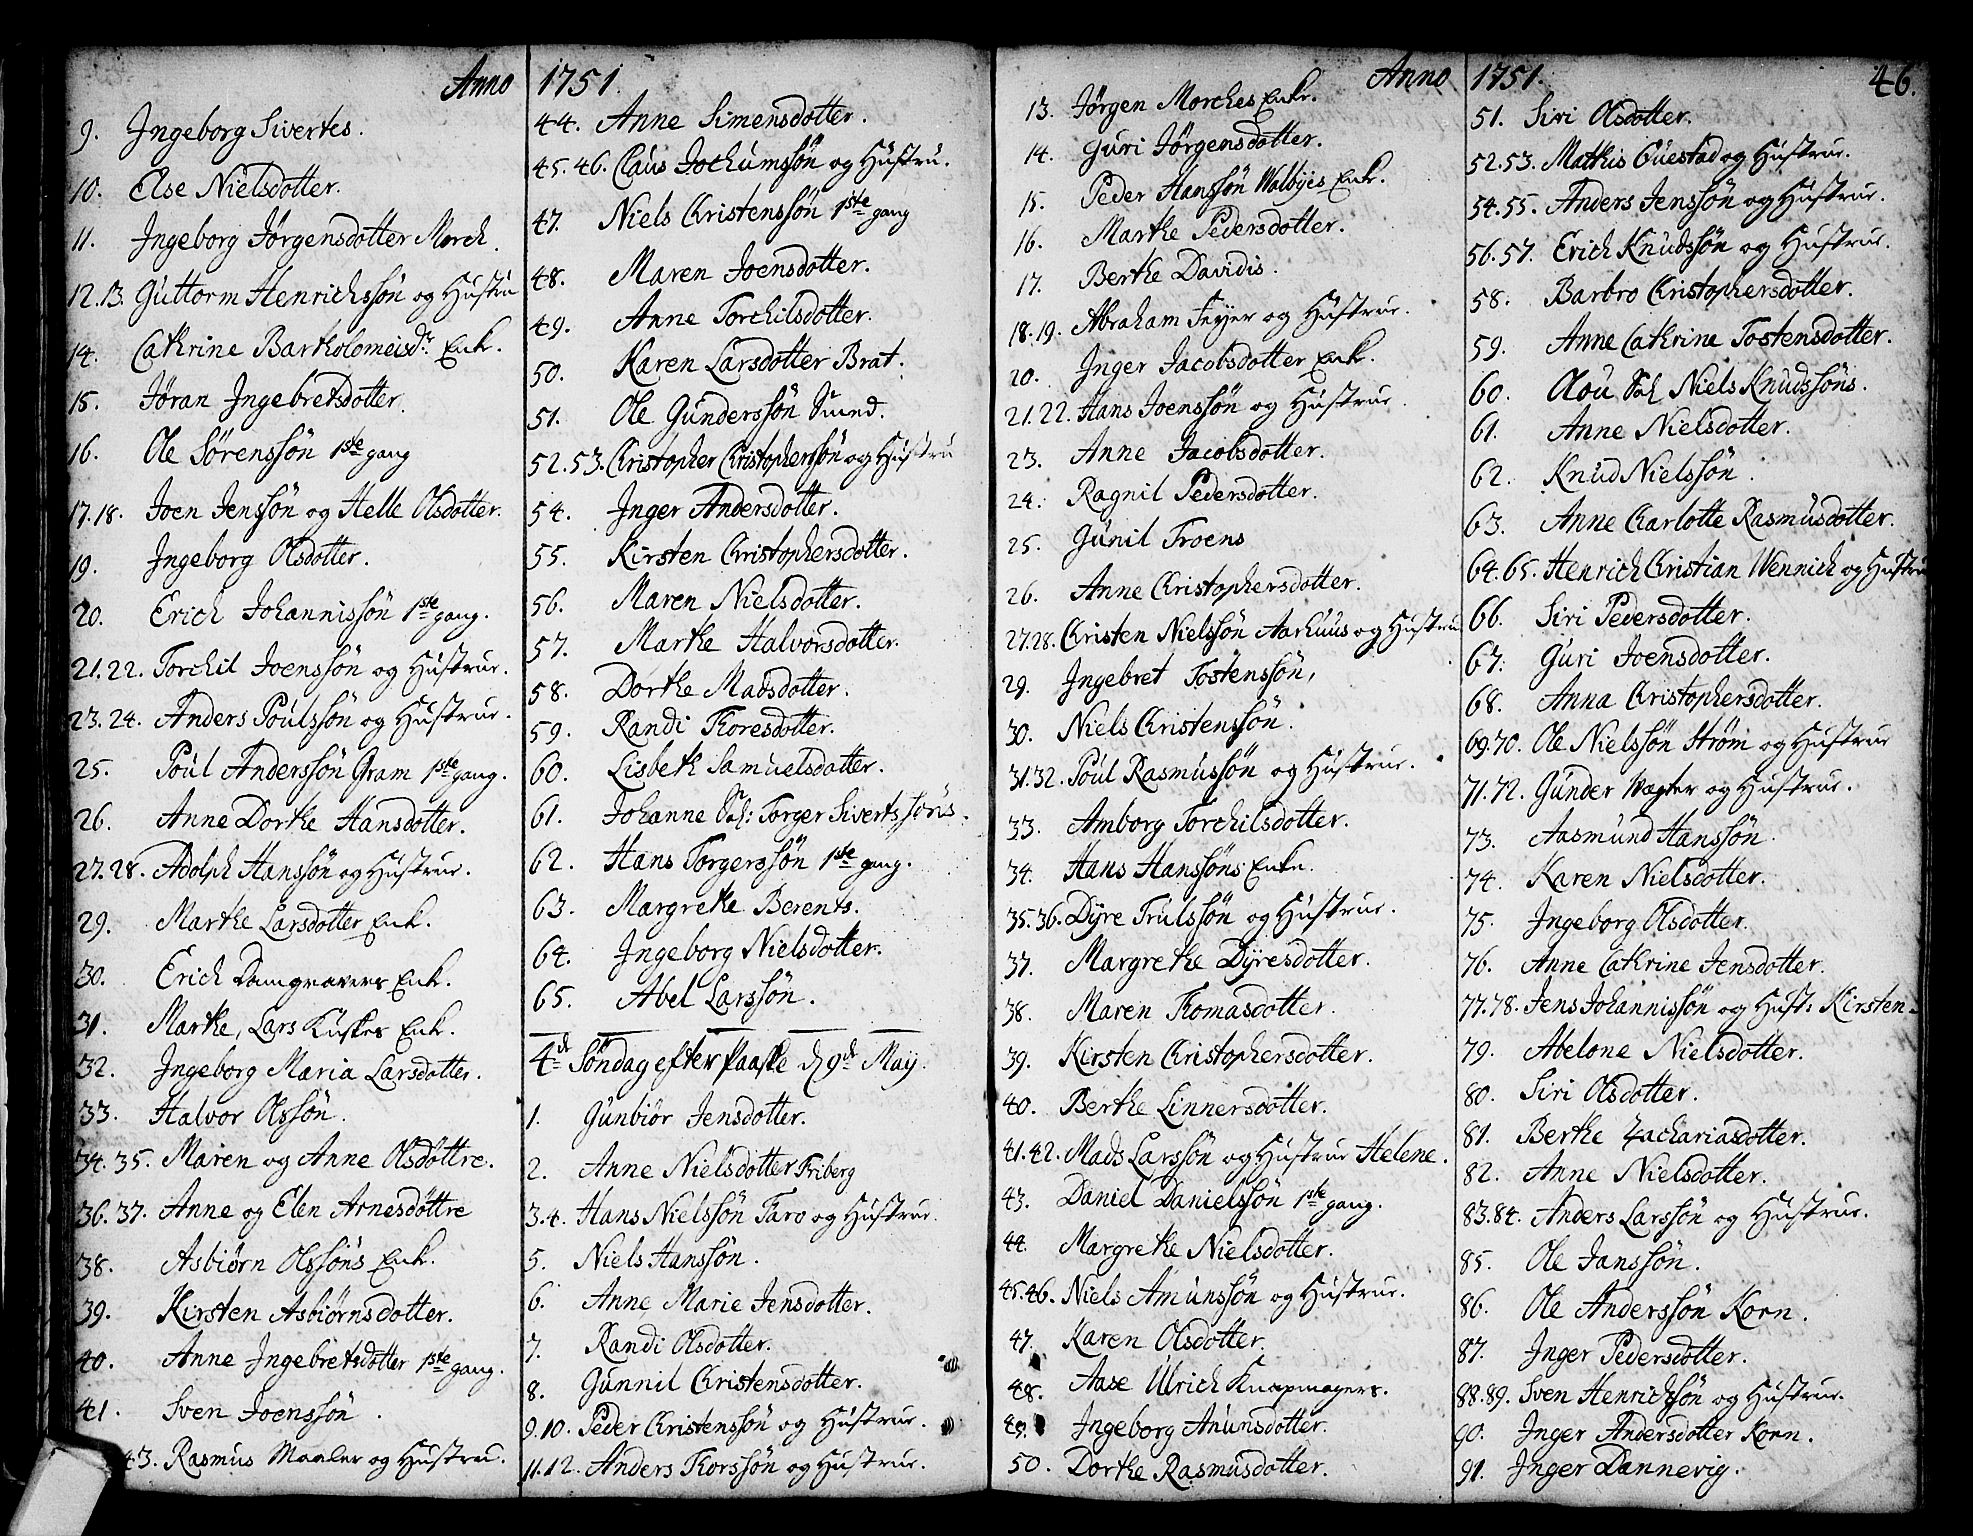 Anno 1751.
9. Ingeborg Sivertes.
10. Else Nielsdotter.
11. Ingeborg Jörgensdotter Morch.
12.13. Guttorm Henrichssön og Hustru
14. Cathrine Bartholomeisdr. Enk.
15. Jöran Ingebretsdotter.
16. Ole Sörenssön 1ste gang
17.18. Joen Jenssön og Helle Olsdotter.
19. Ingeborg Olsdotter.
20. Erich Johannissön 1ste gang.
21.22. Torchil Joenssön og Hustrue.
23.24. Anders Poulssön og Hustrue.
25. Poul Anderssön Gram 1ste gang.
26. Anne Dorthe Hansdotter.
27.28. Adolph Hanssön og Hustrue.
29. Marthe Larsdotter Enk.
30. Erich Damgravers Enk.
31. Marthe, Lars Kuskes Enk.
32. Ingeborg Maria Larsdotter.
33. Halvor Olssön.
34.35. Maren og Anne Olsdöttre.
36.37. Anne og Elen Arnesdöttre
38. Asbiörn Olssöns Enk.
39. Kirsten Asbiörnsdotter.
40. Anne Ingebretsdotter 1ste gang.
41. Sven Joenssön.
43. Rasmus Maaler og Hustrue.
44. Anne Simensdotter.
45.46. Claus Jochumssön og Hustru.
47. Niels Christenssön 1ste gang
48. Maren Joensdotter.
49. Anne Torchilsdotter.
50. Karen Larsdotter Brat.
51. Ole Gunderssön Smed.
52.53. Christopher Christopherssön og Hustru
54. Inger Andersdotter.
55. Kirsten Christophersdotter.
56. Maren Nielsdotter.
57. Marthe Halvorsdotter.
58. Dorthe Madsdotter.
59. Randi Thoresdotter.
60. Lisbeth Samuelsdatter.
61. Johanne Sal: Torger Sivertssöns.
62. Hans Torgerssön 1ste gang.
63. Margrethe Berents.
64. Ingeborg Nielsdotter.
65. Abel Larssön.
4de Söndag efter Paaske d 9de Maij.
1. Gunbiör Jensdotter.
2. Anne Nielsdotter Friberg
3.4. Hans Nielssön Faro og Hustrue.
5. Niels Hanssön.
6. Anne Marie Jensdotter.
7. Randi Olsdotter.
8. Gunnil Christensdotter.
9.10. Peder Christenssön og Hustrue.
11.12. Anders Thorssön og Hustrue.
Anno 1751. 46.
13. Jörgen Morches Enke.
14. Guri Jörgensdotter.
15. Peder Hanssön Walbyes Enk.
16. Marthe Pedersdotter.
17. Berthe Davidis.
18.19. Abraham Feyer og Hustrue.
20. Inger Jacobsdotter Enk.
21.22. Hans Joenssön og Hustrue.
23. Anne Jacobsdotter.
24. Ragnil Pedersdotter.
25. Gunil Troens
26. Anne Christophersdotter.
27.28. Christen Nielssön Aarhuus og Hustru
29. Ingebret Tostenssön,
30. Niels Christenssön.
31.32. Poul Rasmussön og Hustrue.
33. Amborg Torchilsdotter.
34. Hans Hanssöns Enke.
35.36. Dyre Trulssön og Hustrue.
37. Margrethe Dyresdotter.
38. Maren Thomasdotter.
39. Kirsten Christophersdotter.
40. Berthe Linnersdotter.
41.42. Mads Larssön og Hustrue Helene.
43. Daniel Danielssön 1ste gang.
44. Margrethe Nielsdotter.
45.46. Niels Amunssön og Hustrue.
47. Karen Olsdotter.
48. Aase Ulrich Knapmagers.
49. Ingeborg Amunsdotter.
50. Dorthe Rasmusdotter.
51. Siri Olsdotter.
52.53. Mathis Guestad og Hustrue.
54.55. Anders Jenssön og Hustrue.
56.57. Erich Knudssön og Hustrue.
58. Barbro Christophersdotter.
59. Anne Cathrine Tostensdotter.
60. Olou Sal Niels Knudssöns.
61. Anne Nielsdotter.
62. Knud Nielssön.
63. Anne Charlotte Rasmusdotter.
64.65. Henrich Christian Wennich og Hustru
66. Siri Pedersdotter.
67. Guri Joensdotter.
68. Anna Christophersdotter.
69.70. Ole Nielssön Ström og Hustrue
71.72. Gunder Vægter og Hustrue.
73. Aasmund Hanssön.
74. Karen Nielsdotter.
75. Ingeborg Olsdotter.
76. Anne Cathrine Jensdotter.
77.78. Jens Johannissön og Hust: Kirsten.
79. Abelone Nielsdotter.
80. Siri Olsdotter.
81. Berthe Zachariasdotter.
82. Anne Nielsdotter.
83.84. Anders Larssön og Hustrue.
85. Ole Janssön.
86. Ole Anderssön Korn.
87. Inger Pedersdotter.
88.89. Sven Henrichssön og Hustrue.
90. Inger Andersdotter Korn.
91. Inger Dannevig.